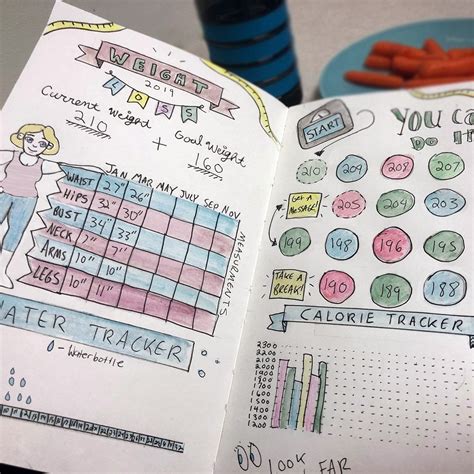 WEIGHT
2019
LOSS
Current Weight
210
+
Goal Weight
160
JAN MAR MAY JULY SEP NOV
WAIST 27" 26"
HIPS 32" 30"
BUST 34" 34"
NECK 7" 7"
ARMS 10" 10"
LEGS 10" 11"
MEASUREMENTS
WATER TRACKER
- Waterbottle
START
YOU CA
DO I
210 209 208 207
GET A MESSAGE! 205 204 203
199 198 196 195
TAKE A BREAK! 190 189 188
CALORIE TRACKER
2300
2200
2100
2000
1900
1800
1700
1600
1500
1400
1300
1200
LOOK
FAR